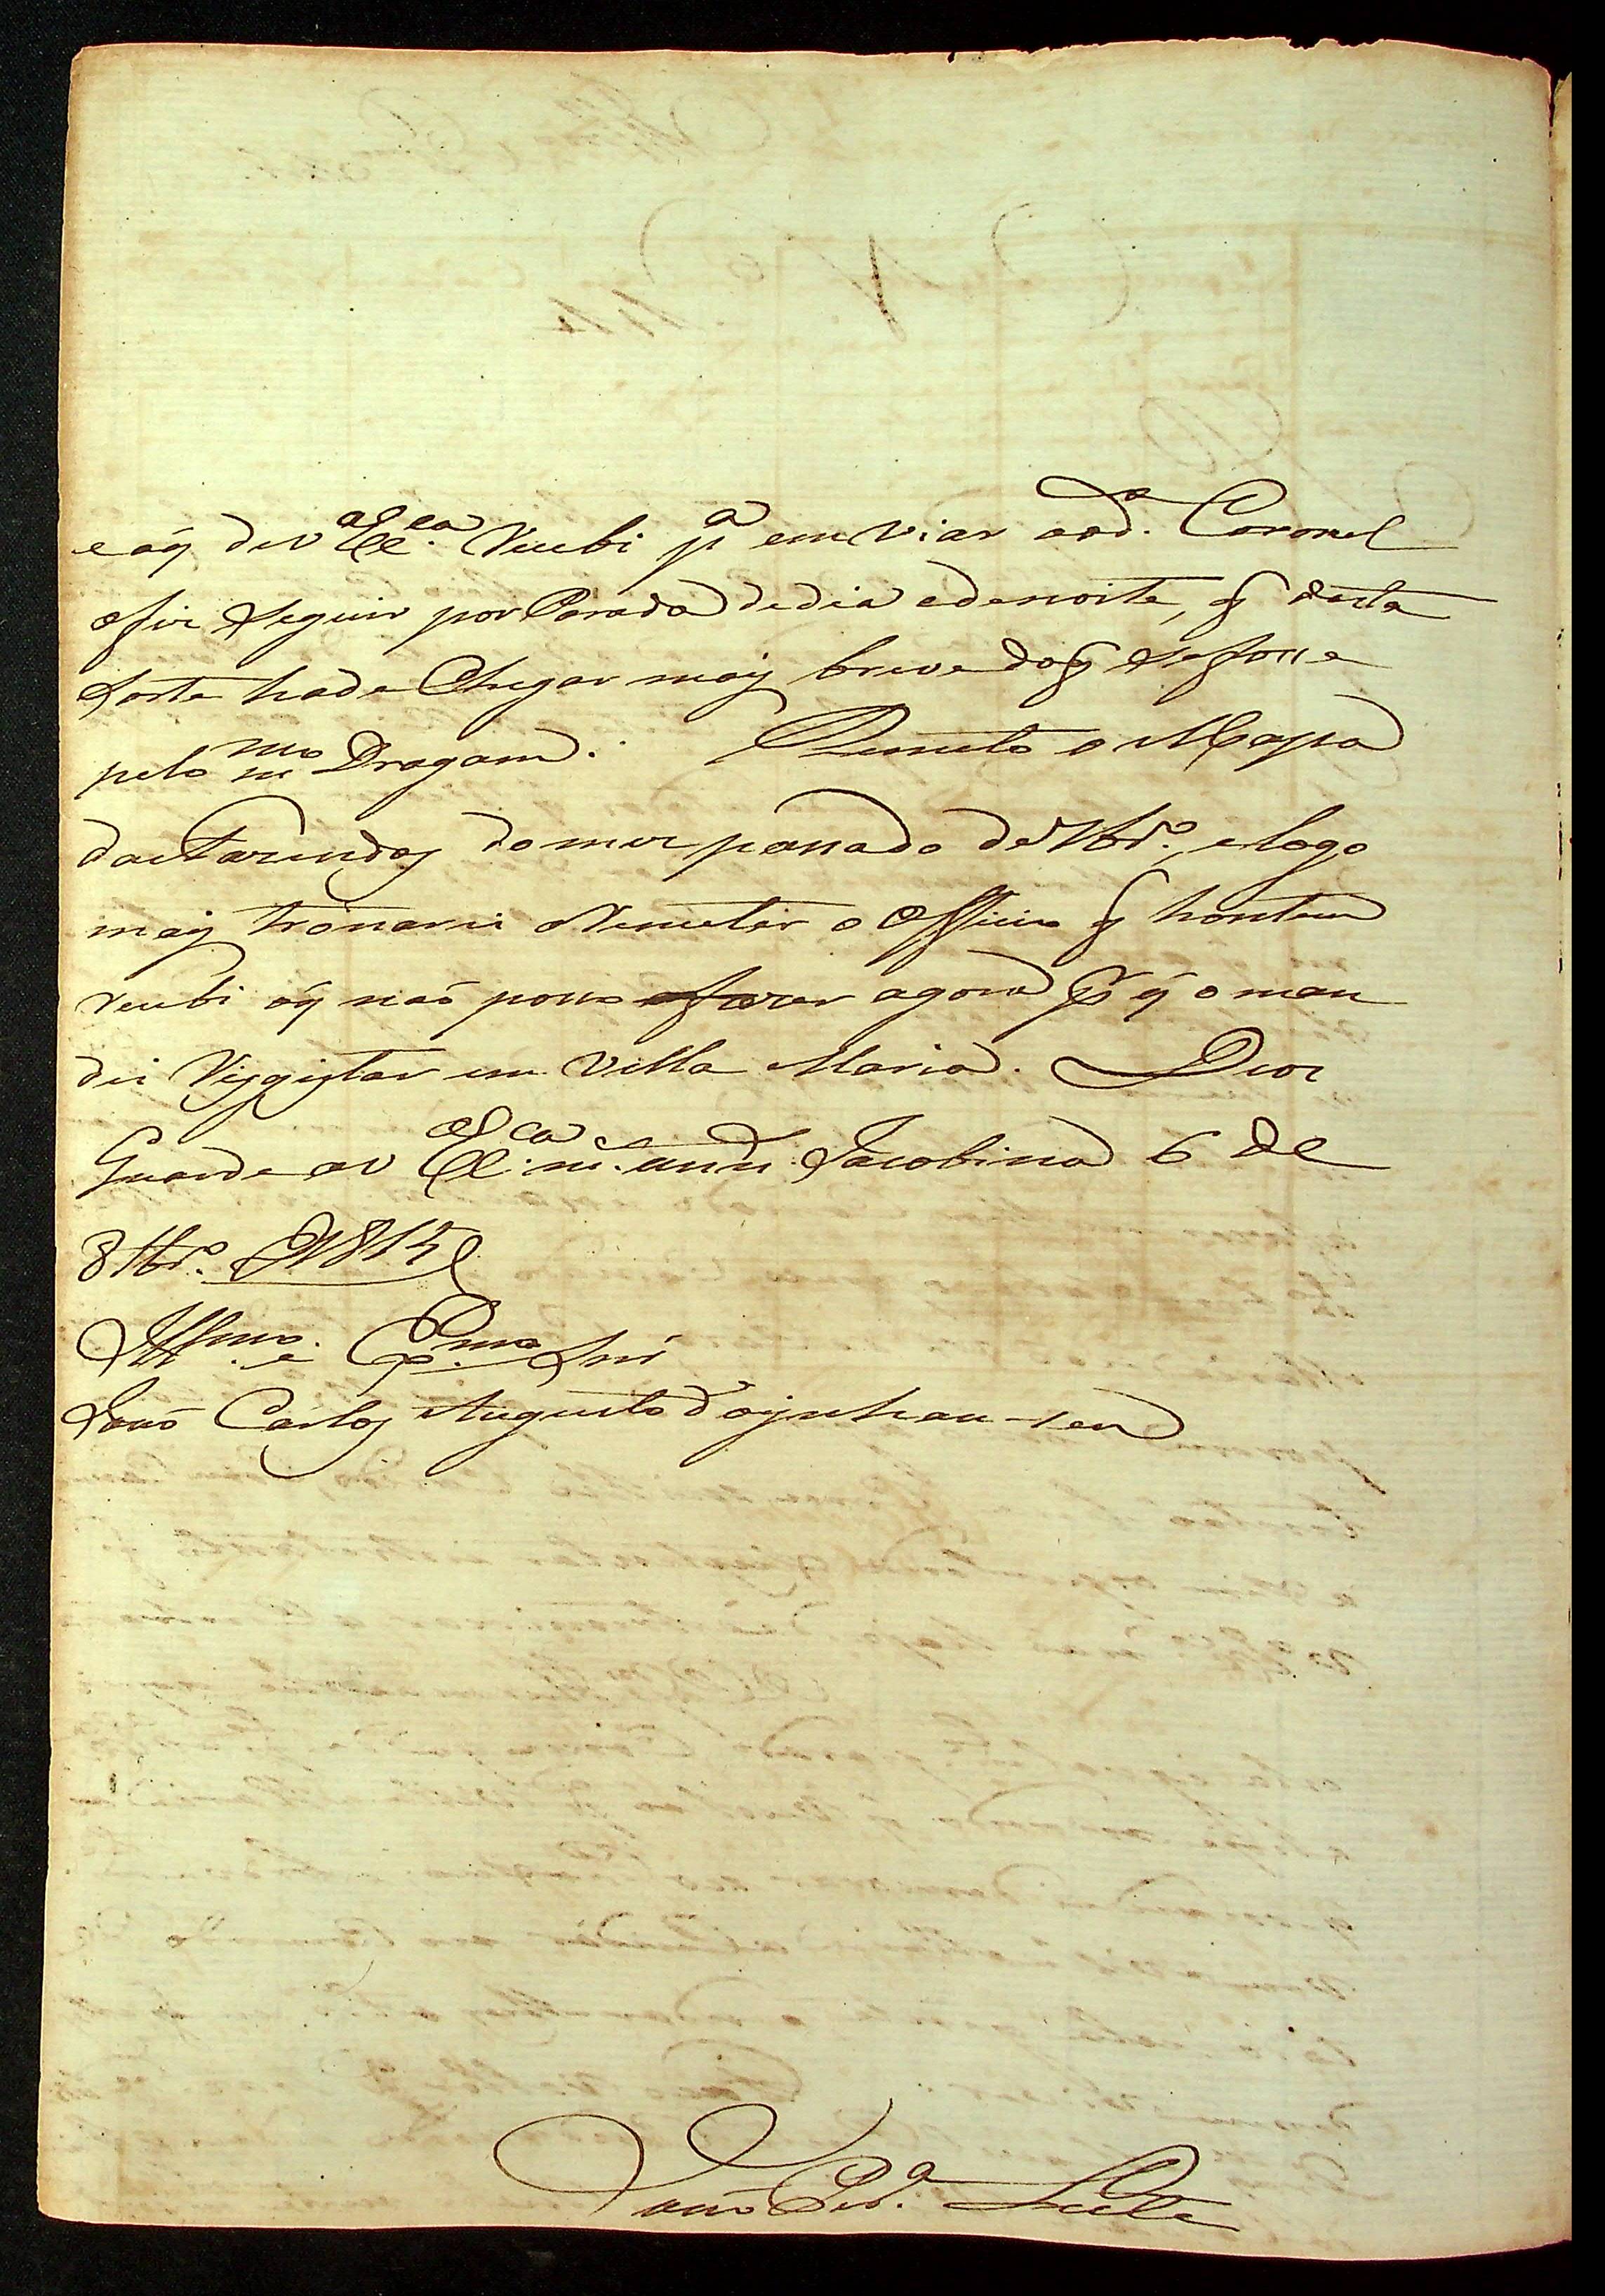 eoq̃ de V Exca. Recebi pa. emviar aod. Coronel
ofis Seguir por Parada dedia edenoite, q̃ desta
Sorte hade Chegar mais breve doq̃ Sefosse
pelo mmo Dragam. Remeto o Mapa
daFazendas do mes passado de 7bro., elogo
mais tromarei Remeter o Officio q̃ hontem
recebi oq̃ naõ posso fazer agora p q̃ o man
dei Reggistar em Villa Maria. Deos
Guarde aV Exca. m. ann. Jacobina 6 de
8bro. D 1815
Illmo. e Exmo. Snr
Joaõ Carlos Augusto d'oynhau-sen
Joaõ Per.a Leite